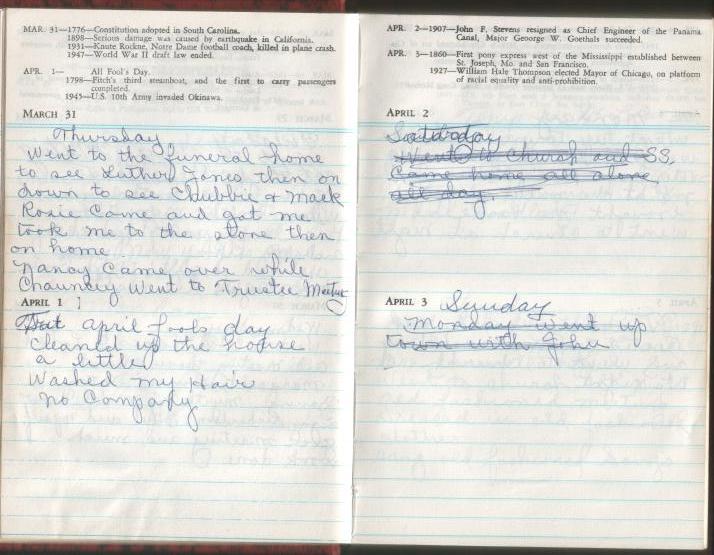 MAR. 31—1776—Constitution adopted in South Carolina.
1898—Serious damage was caused by earthquake in California.
1931—Knute Rockne, Notre Dame football coach, killed in plane crash.
1947—World War II draft law ended.
APR. 1— All Fool's Day.
1798—Fitch's third steamboat, and the first to carry passengers
completed.
1945—U.S. 10th Army invaded Okinawa.
MARCH 31
Thursday
Went to the funeral home
to see Luther Jones then on
down to see Chubbie & Mack
Rosie Came and got me
took me to the store then
on home
Nancy Came over while
Chauncey Went to Trustee Meeting
APRIL 1
April fools day
Cleaned up the house
a little
Washed my Hair
no Company
APR. 2—1907—John F. Stevens resigned as Chief Engineer of the Panama
Canal, Major Geroge W. Goethals succeeded.
APR. 3—1860—First pony express west of the Mississippi established between
St. Joseph, Mo. and San Francisco.
1927—William Hale Thompson elected Mayor of Chicago, on platform
of racial equality and anti-prohibition.
APRIL 2
Saturday
Went to Church and SS,
Came home all alone
all day.
APRIL 3 Sunday
Monday went up
town with John